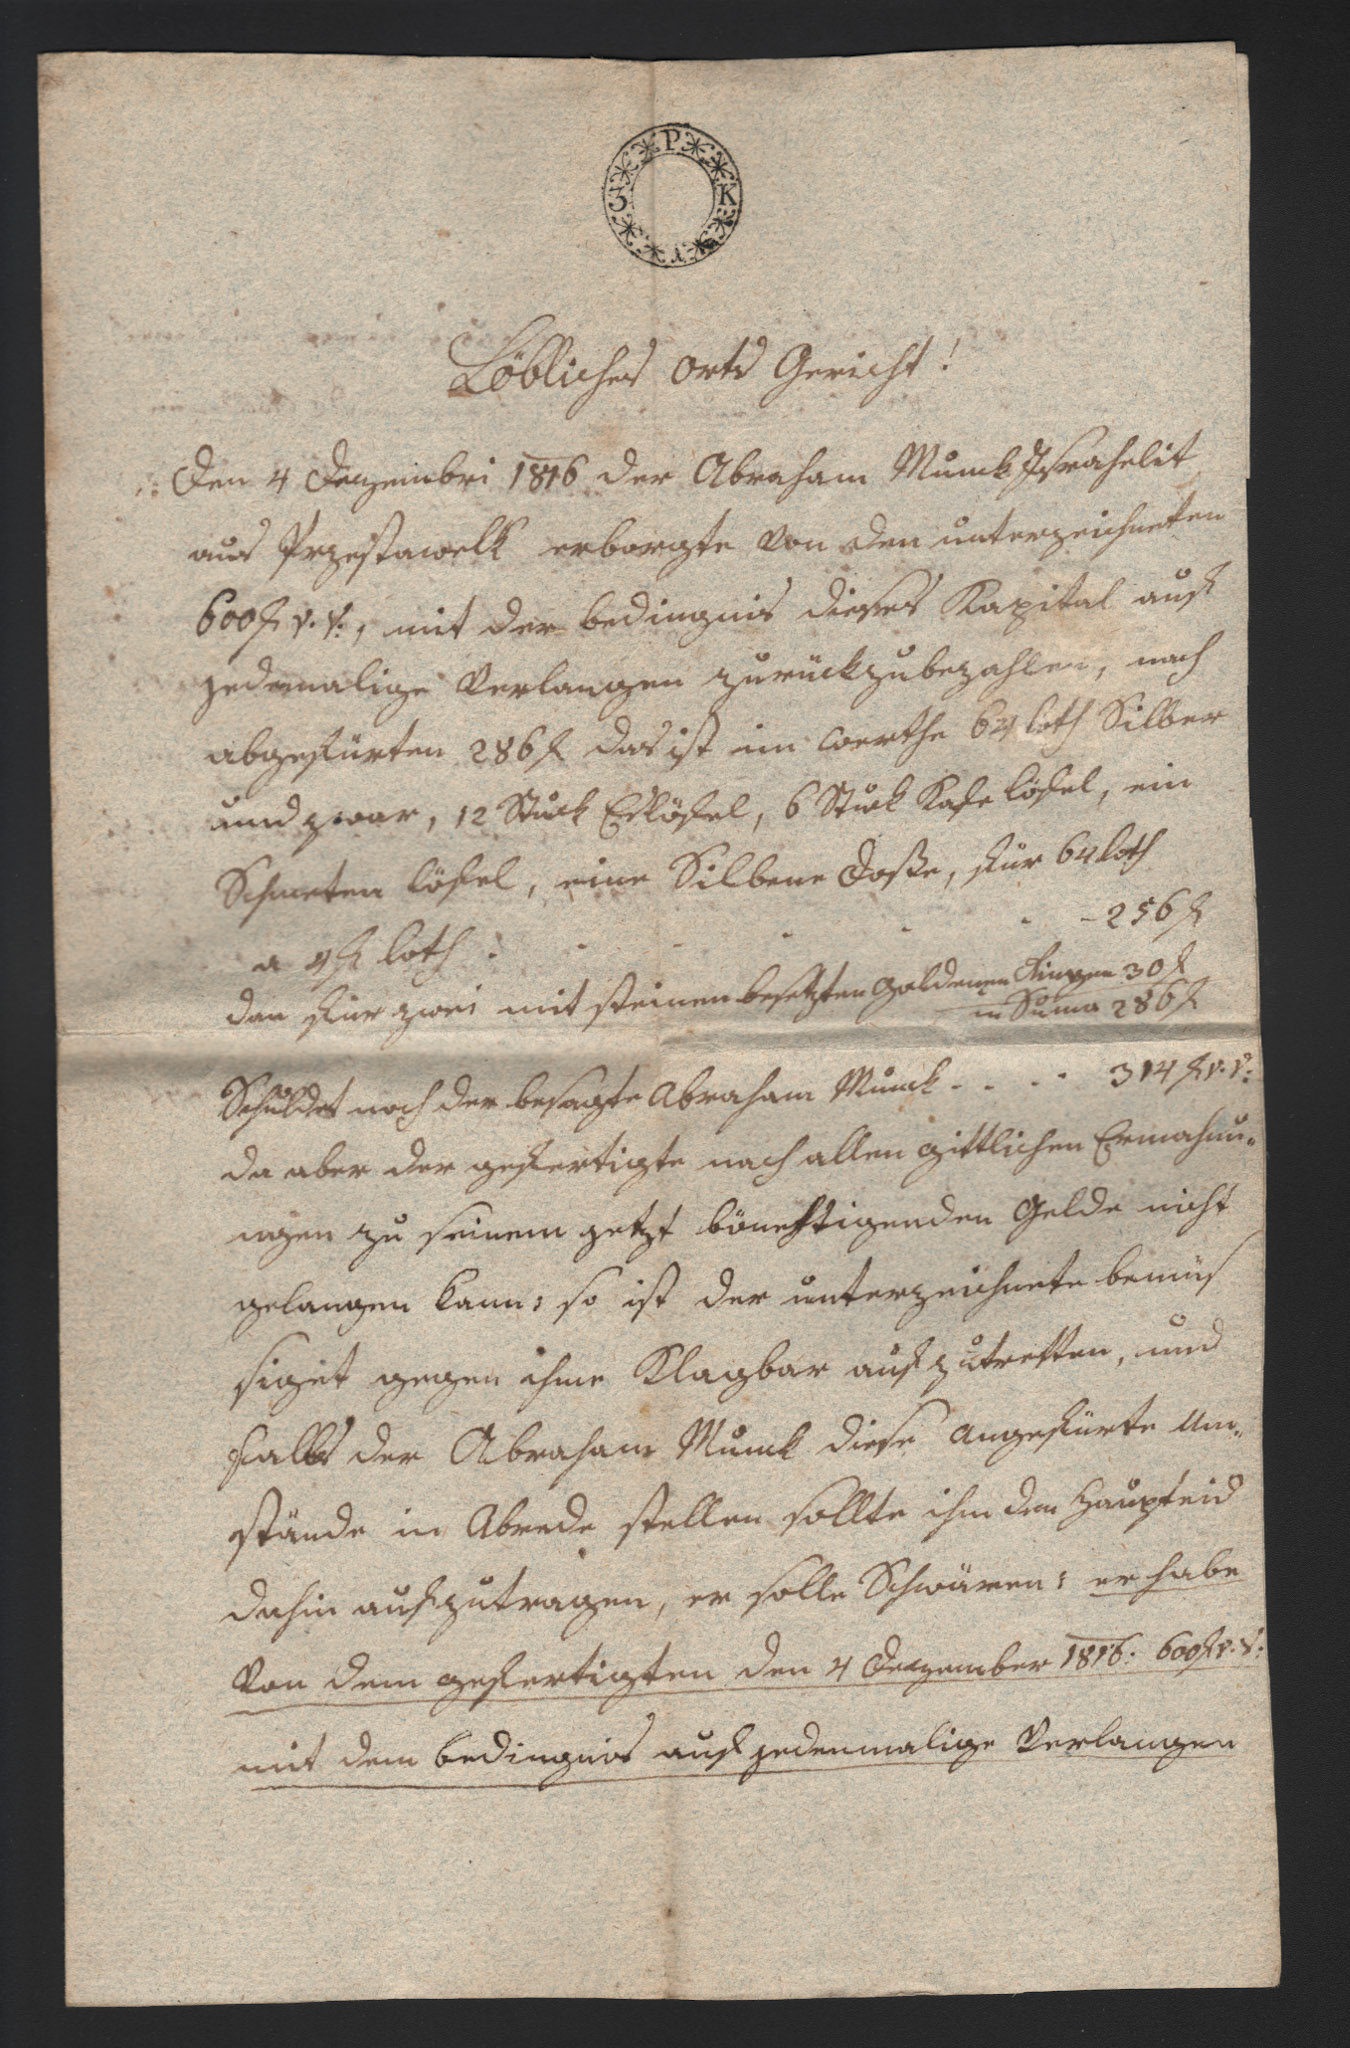 3 P K
Löbliches Orts Gericht!
Den 4 Dezembri 1816 der Abraham Munck Israhelit
aus Przestawelk erborgte von den unterzeichneten
600 f, mit der bedingnis dieses Kapital auf
jedemalige Verlangen zurückzubezahlen, nach
abgefürten 286 f das ist im werthe 64 loth Silber
und zwar, 12 Stuck Eslöfel, 6 Stuck Kafe löfel, ein
Schmeten löfel, eine Silbene Dosße, für 64 loth
a 4 f loth . . . . . . - 256 f
dan für zwei mit steinen besetzten goldenen Ringen 30 f
in Suma 286 f
Schuldet noch der besagte Abraham Munck . . . . 314 f
da aber der gefertigte nach allen gittlichen Ermahnu-
ngen zu seinem jetzt bönehtigenden Gelde nicht
gelangen kann: so ist der unterzeichnete bemüs
siget gegen ihme Klagbar aufzutretten, und
falls der Abraham Munck diese angefürte Um-
stände in Abrede stellen sollte ihm den Haupteid
dahin aufzutragen, er solle Schwären: er habe
Von dem gefertigten den 4 Dezember 1816. 600 f
mit dem bedingnis auf jedenmalige Verlangen